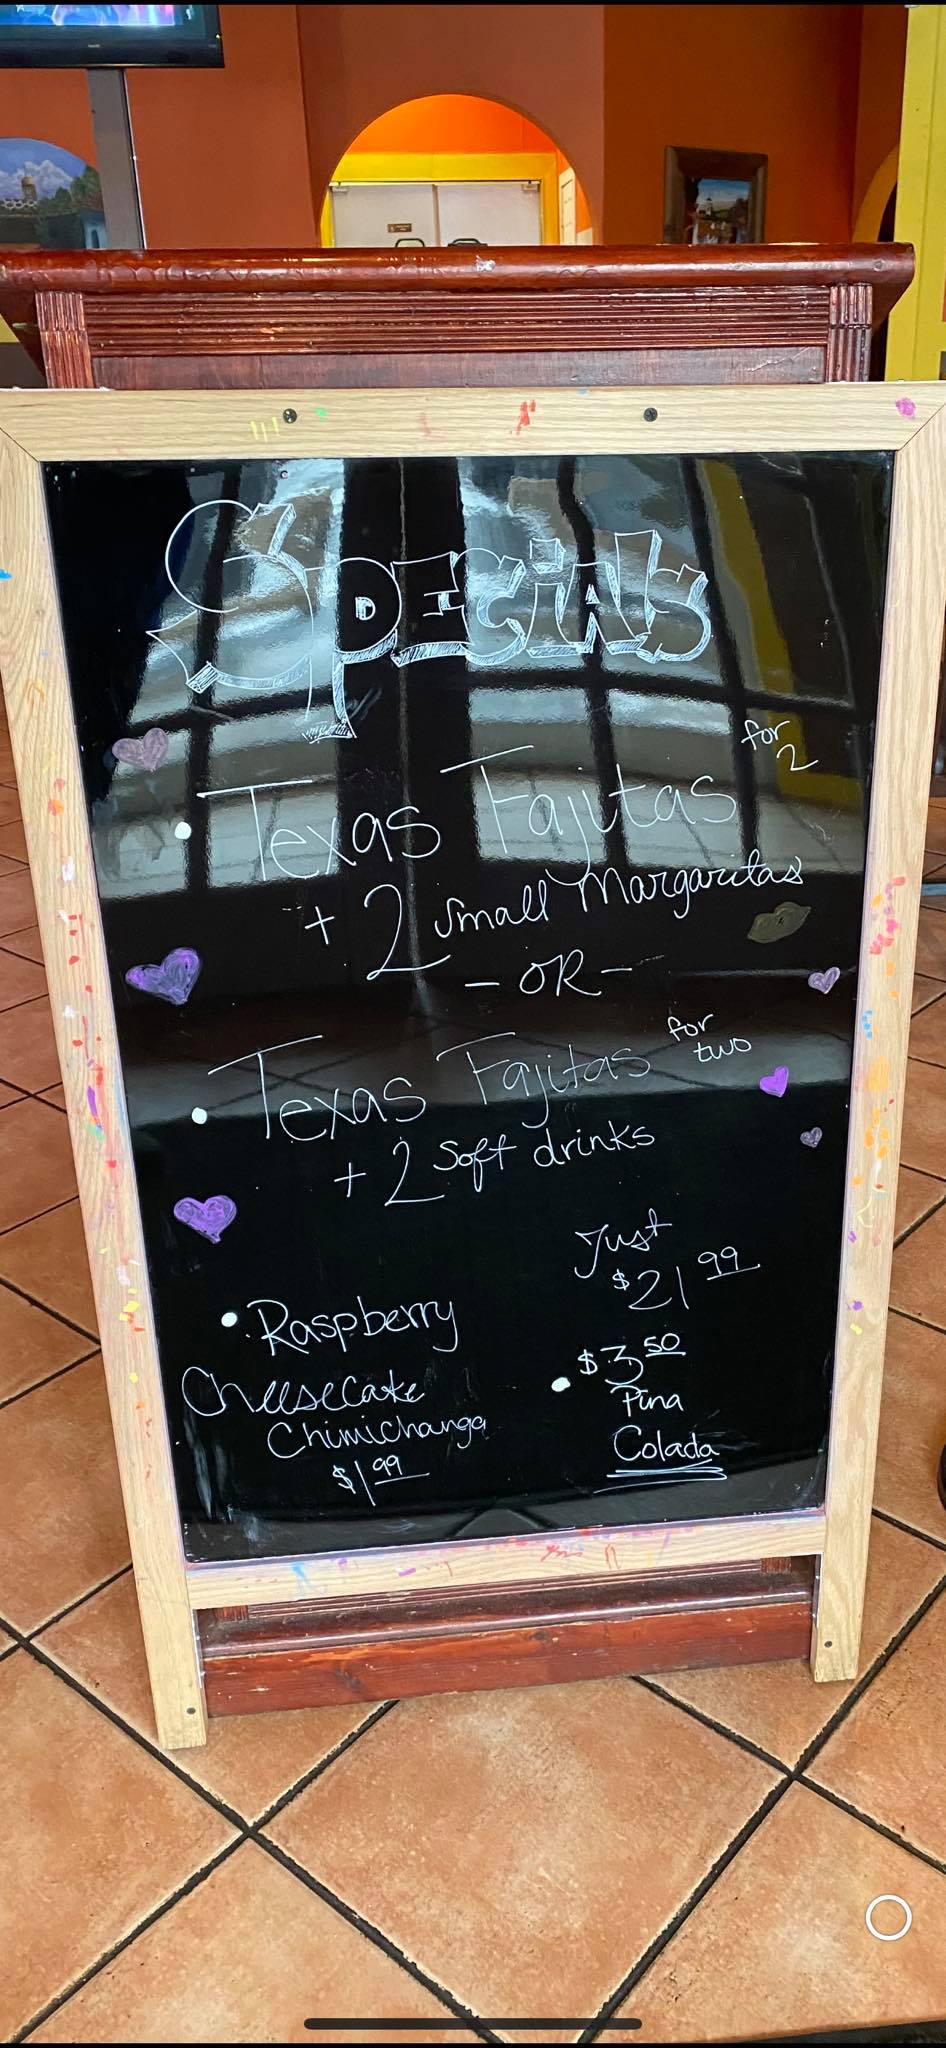 Specials
• Texas Fajitas for 2
+ 2 small Margaritas
- OR -
• Texas Fajitas for two
+ 2 soft drinks
Just
$21 99
• Raspberry
Cheesecake
Chimichanga
$1 99
• $3 50
Pina
Colada